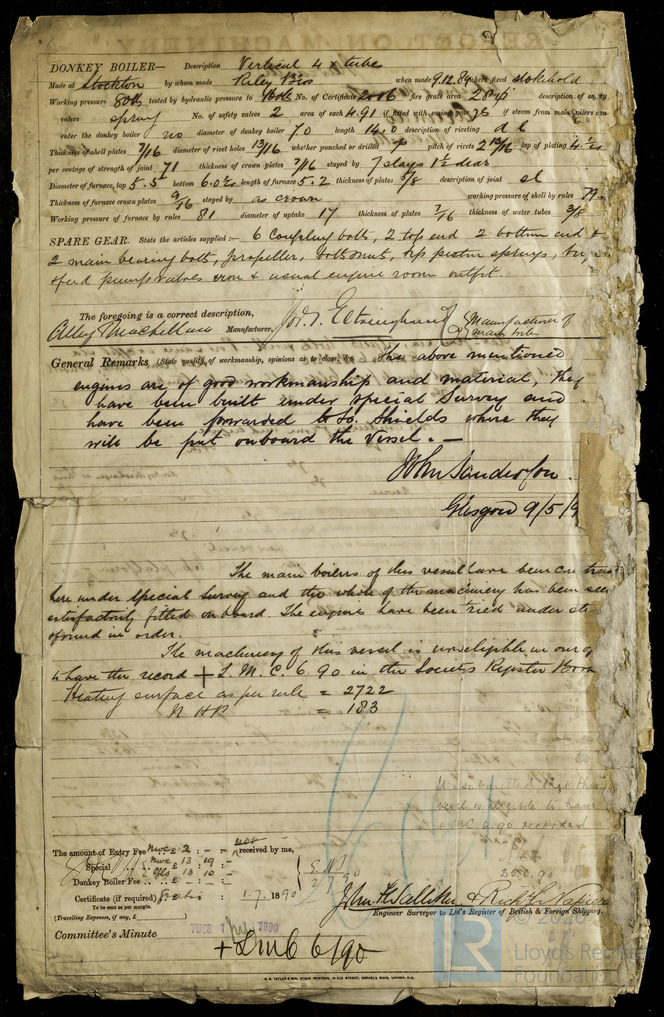 DONKEY BOILER— Description Vertical 4 x tube
Made at Stockton by whom made Riley Bros when made 9.12.89 where fixed stokehold
Working pressure 80lb tested by hydraulic pressure to No. of Certificate 2006 fire grate area 28 description of safety
valves spring No. of safety valves 2 area of each 4.91 if fitted with easing gear yes if steam from main boilers can
enter the donkey boiler no diameter of donkey boiler 7.0 length 14.0 description of riveting d l
Thickness of shell plates 7/16 diameter of rivet holes 13/16 whether punched or drilled p pitch of rivets 2 13/16 lap of plating
per centage of strength of joint 71 thickness of crown plates 7/16 stayed by 7 stays 1½ diar
Diameter of furnace, top 5.5 bottom 6.0 length of furnace 5.2 thickness of plates 3/8 description of joint sl
Thickness of furnace crown plates 9/16 stayed by as crown working pressure of shell by rules 79
Working pressure of furnace by rules 81 diameter of uptake 17 thickness of plates 7/16 thickness of water tubes 3/8
SPARE GEAR. State the articles supplied:— 6 Coupling bolts, 2 top end 2 bottom end &
2 main bearing bolts, propeller, bolts & nuts, piston springs,
feed pump valves iron & usual engine room outfit
The foregoing is a correct description,
Alley & Maclellan Manufacturer, Jos. T. Eltringham & Co Manufacturer of main boiler
General Remarks (State quality of workmanship, opinions as to class, &c. The above mentioned
engines are of good workmanship and material, they
have been built under special Survey and
have been forwarded to So. Shields where they
will be put onboard the Vessel. —
John Sanderson.
Glasgow 9/5/9
The main boilers of this vessel have been
here under special survey and the whole of the machinery has been seen
satisfactorily fitted on board. The engines have been tried under
found in order.
The machinery of this vessel is now eligible in our
to have the record + L.M.C. 6.90 in the Society's Register Book
Heating surface as per rule = 2722
N HP = 183
It is submitted that this
vessel is eligible to have
LMC 6.90 recorded
The amount of Entry Fee Nwc £ 2 : - : - not received by me,
Special Nwc £ 13 : 19 : -
Gls £ 13 : 10 : -
Donkey Boiler Fee £ - : - : -
Certificate (if required) 1.7. 1890
To be sent as per margin.
(Travelling Expenses, if any, £ )
John H. Salliker &
Engineer Surveyor to Lld's Register of British & Foreign Shipping.
Committee's Minute TUES 1 July 1890
+ LMC 6/90
© 2020
LR
Lloyd's Register
Foundation